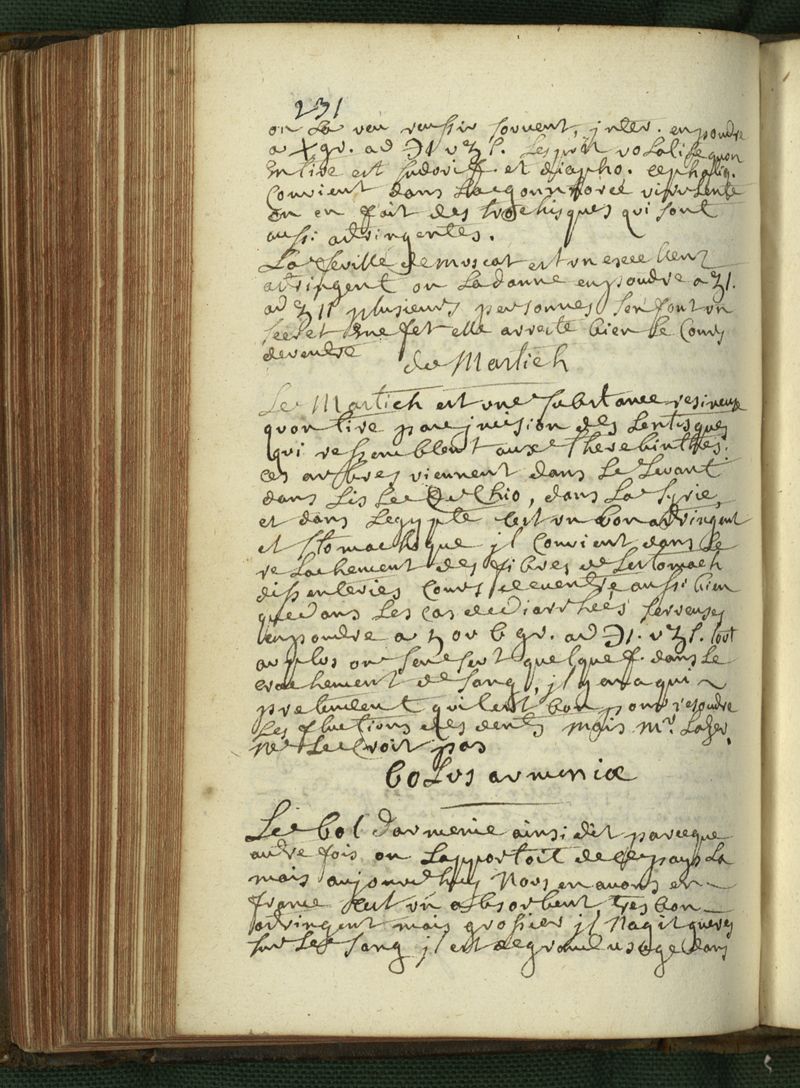 231
on La veu reussir souvent, inter. en poudre
a X gr. ad ℈1 v ʒ ſ. Lesprit volatile quon
En tire est sudorif. et diapho. cephaliq.
Convient dans La gonnhoree virulente
on en fait des trochisques qui sont
aussi adringentes.
La de moscat est un excellent
adringent on La donne en poudre a ʒ1.
ad ʒ 11 plusieurs personnes sen font un
secret En effet elle arreste bien Le Cours
de ventre
du Mastich
Le Mastich est une substance resineuse
quon tire par incision des Lentisques
qui ressemblent aux Therebinthes.
ces arbres viennent dans Le Levant
dans Lisle de Chio, dans La Syrie,
et dans Legypte cest un bon adringent
et stomachique il Convient dans Le
relachement des fibres de Lestomach
dissenteries Cours de ventre aussi bien
que dans Les Cas de diarrhées sereuses
en poudre a ʒ ou 6 gr. ad ℈1. v ʒ ſ. tout
au plus on sen sert quelque f. dans Le
crachement de sang, il y en a qui
pretendent quil est bon pour resoudre
Les fluctions des dents mais Mr. Lazer.
ne Le Croit pas
bolus armeniæ
Le bol darmenie ainsi dit parceque
autre fois on Lapportoit de ce pays La
mais aujourdhuy Nous en avons en
france cest un absorbent tres bon
adringent mais grossier il Nagit gueres
sur Le sang il est de grand usage dans